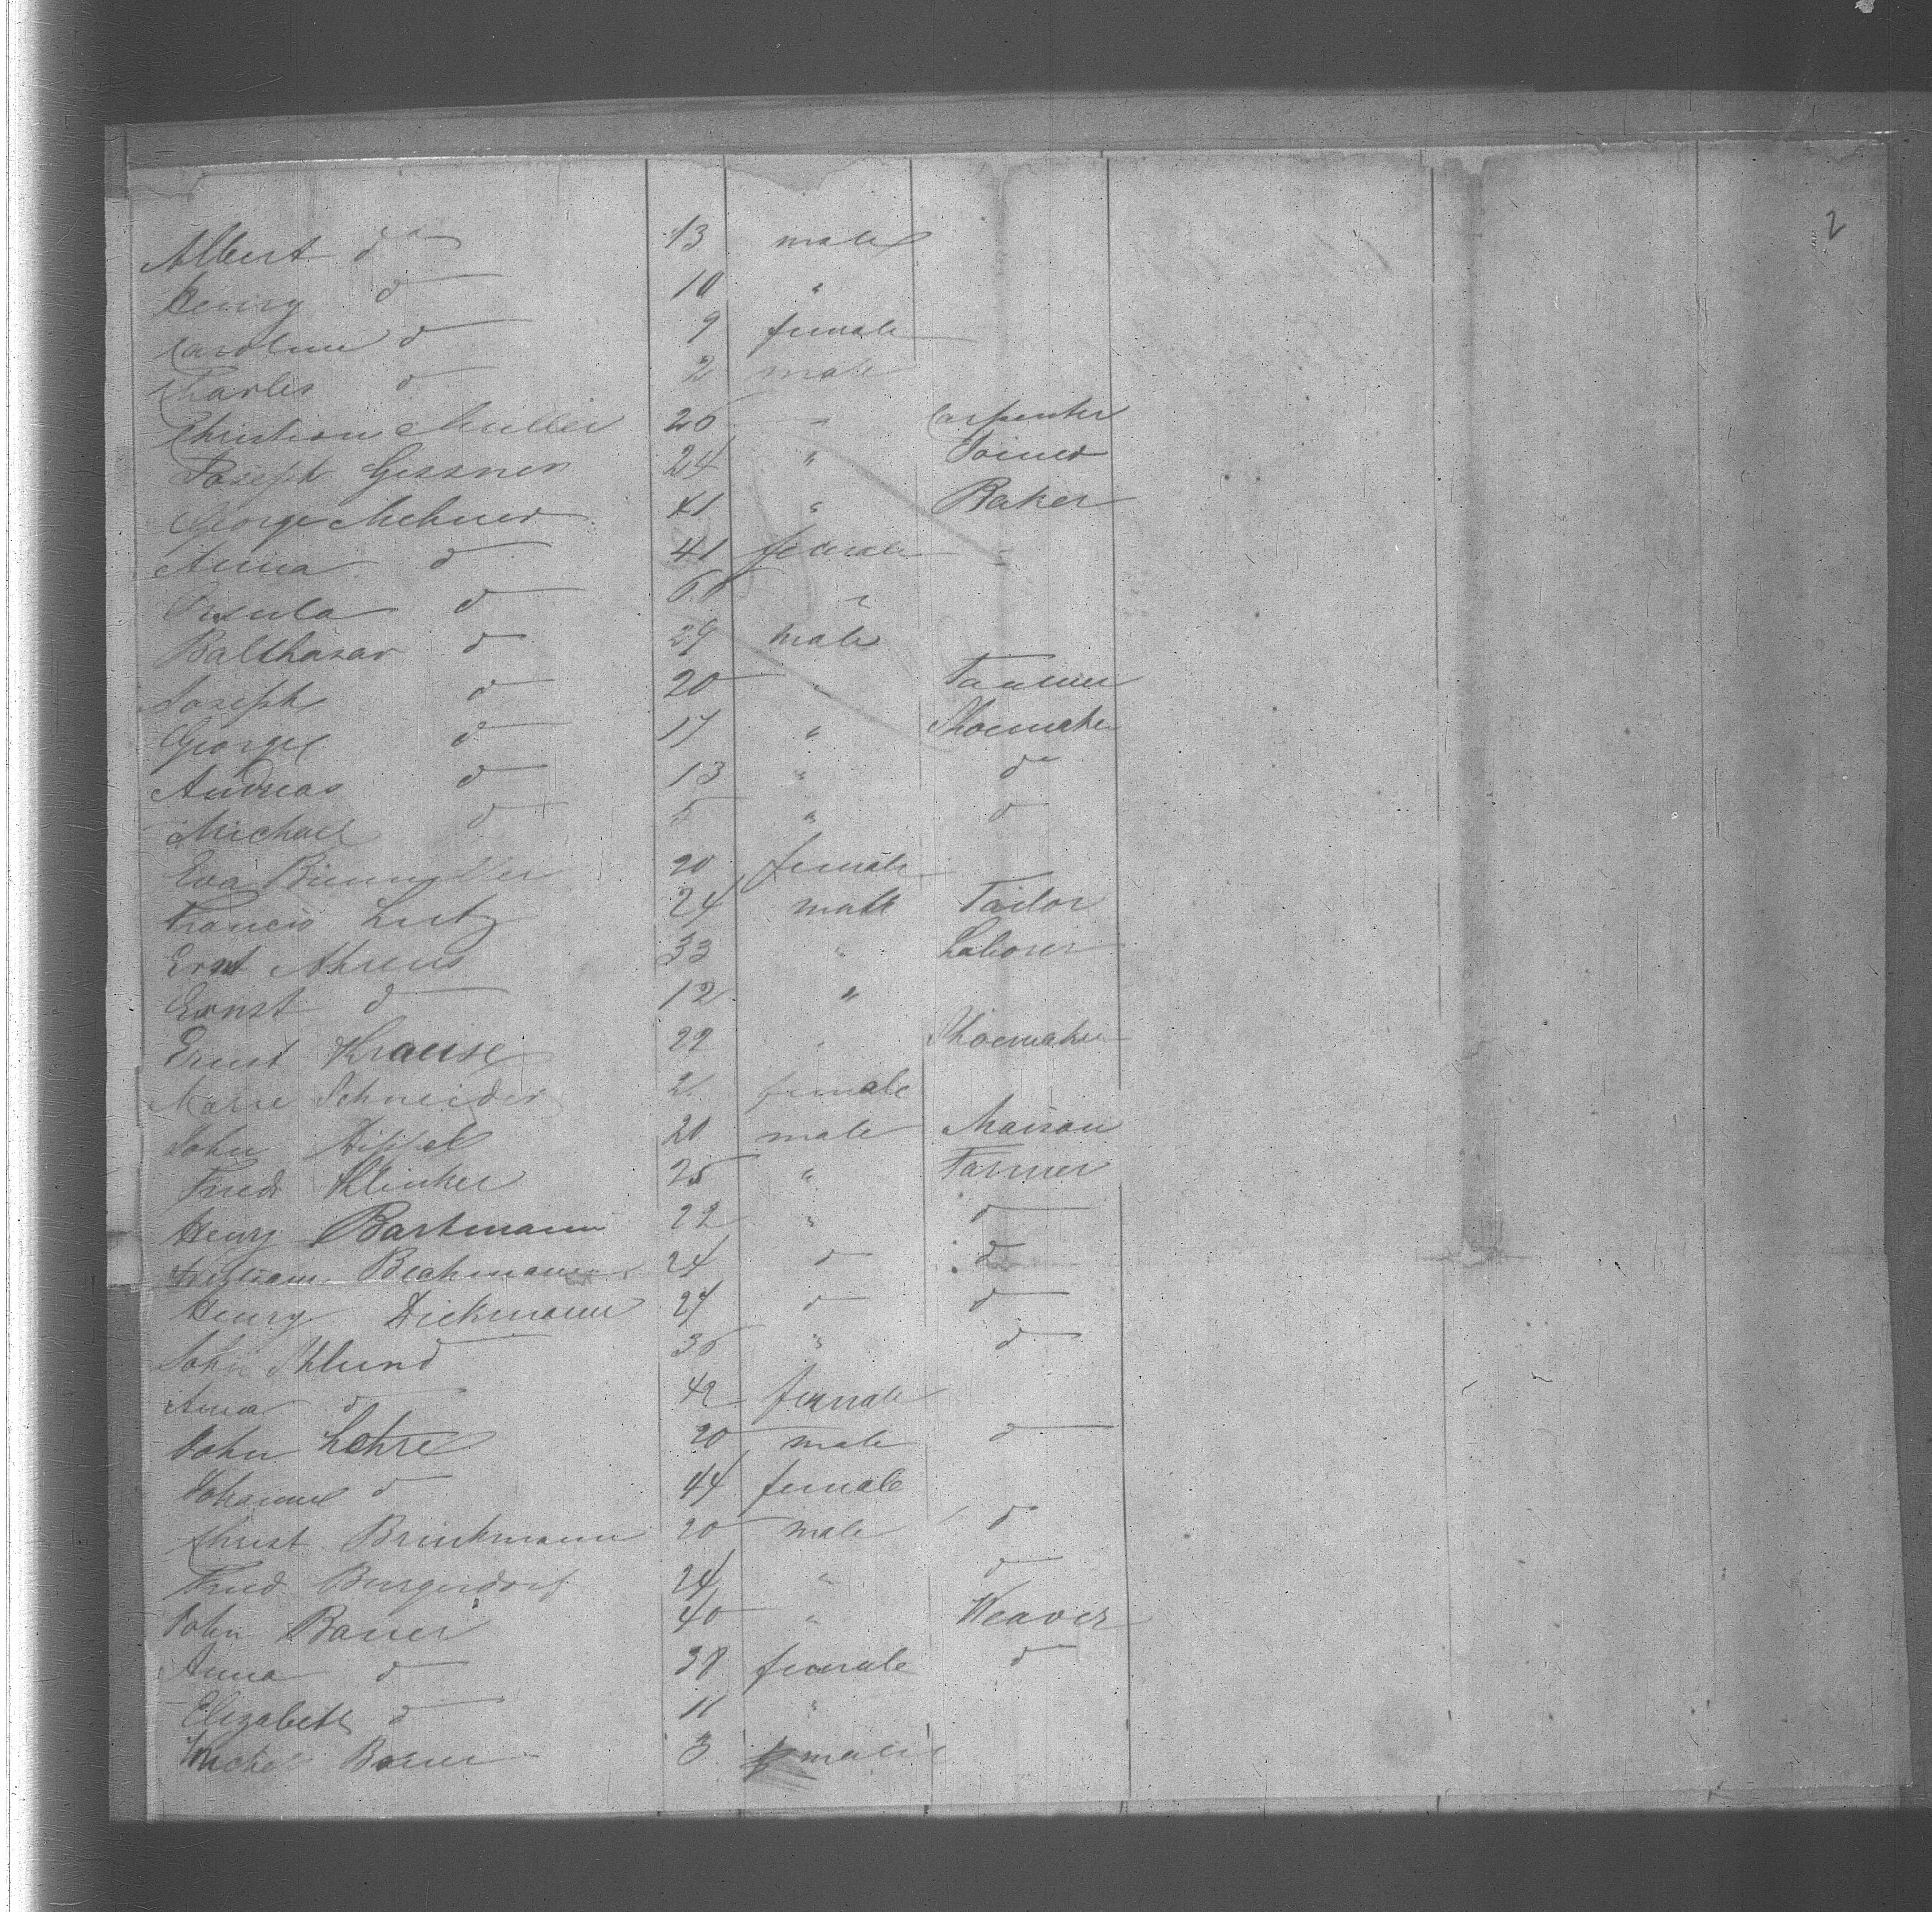 2
Albert do 13 male
Henry do 10 "
Caroline do 9 female
Charles do 2 male
Christian Muller 26 " Carpenter
Joseph Gessner 24 " Joiner
George Mehner 41 " Baker
Anna do 41 female "
Ursula do 60 "
Balthasar do 29 male
Joseph do 20 " Tanner
George do 17 " Shoemaker
Andreas do 13 " do
Michael do 5 " do
Eva 20 female
Francis Lutz 24 male Tailor
Ernst Ahrens 33 " Laborer
Ernst do 12 "
Ernst Krause 22 " Shoemaker
Marie Schneider 21 female
John Hippel 20 male Maison
Friedr Klinker 25 " Farmer
Henry Bartmann 22 " do
William Beckmann 24 do do
Henry Dickmann 27 do do
John 36 " do
Anna do 42 female
John Lohre 20 male do
Johanne do 44 female
Christ Brinkmann 20 male do
Fried Burgerdorf 24 " do
John Bauer 40 " Weaver
Anna do 38 female do
Elizabeth do 11 "
Bauer 3 male